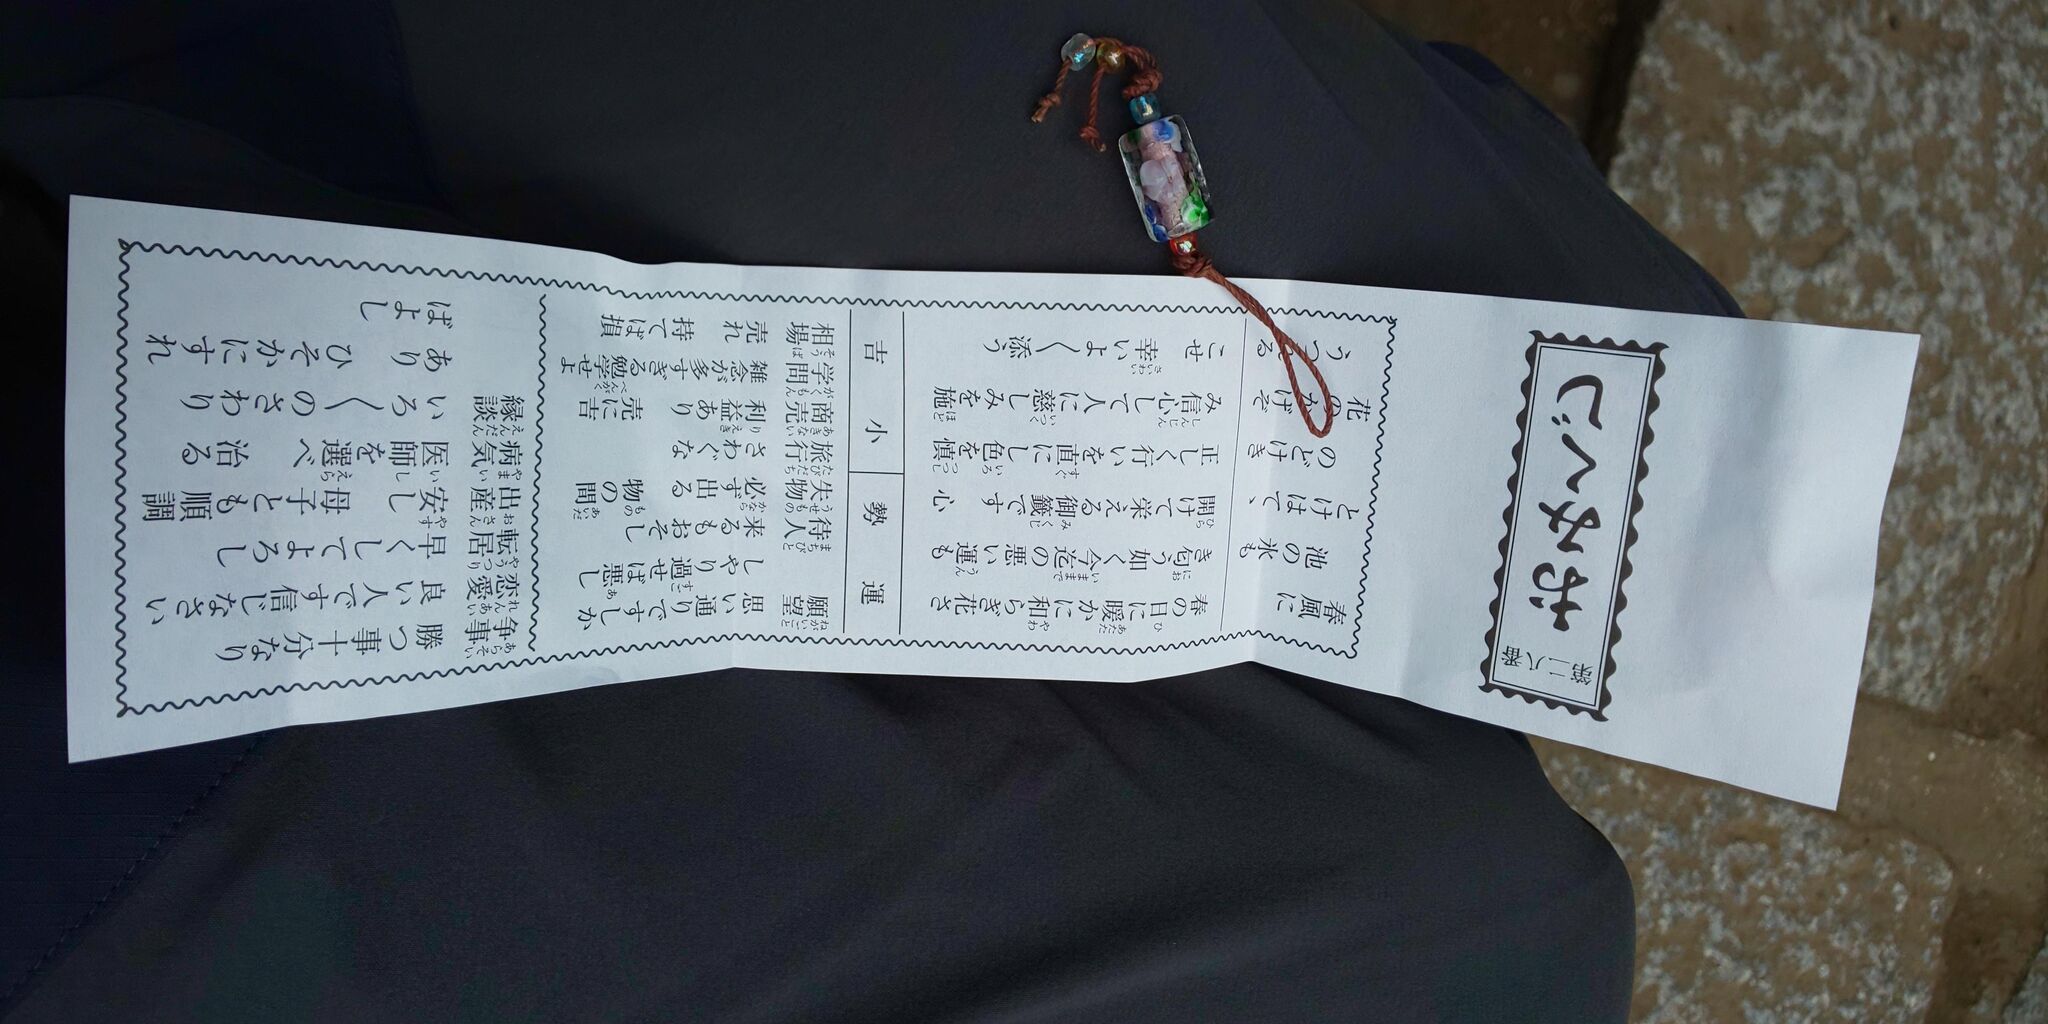 第二八番
おみくじ
春風に
池の氷も
とけはて、
のどけき
花のかげぞ
うつれる
春の日に暖かに和らぎ花さ
き匂う如く今迄の悪い運も
開けて栄える御籤です 心
正しく行いを直にし色を慎
み信心して人に慈しみを施
こせ 幸いよく添う
運勢
小吉
願望 思い通りですしか
しやり過せば悪し
待人 来るもおそし
失物 必ず出る 物の間
旅行 さわぐな
商売 利益あり 売に吉
学問 雑念が多すぎる勉学せよ
相場 売れ 持てば損
争事 勝つ事十分なり
恋愛 良い人です信じなさい
転居 早くしてよろし
出産 安し 母子とも順調
病気 医師を選べ 治る
縁談 いろ〱のさわり
あり ひそかにすれ
ばよし